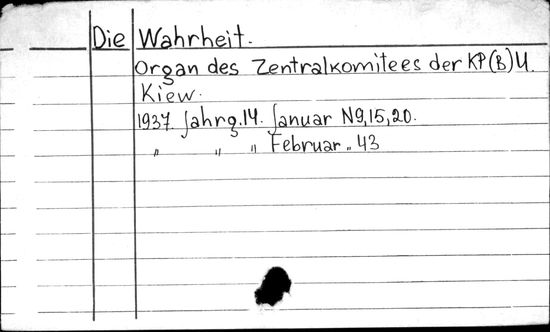 Die Wahrheit.
Organ des Zentralkomitees der KP(B)U.
Kiew.
1937. Jahrg.14. Januar N9,15,20.
" " " Februar " 43